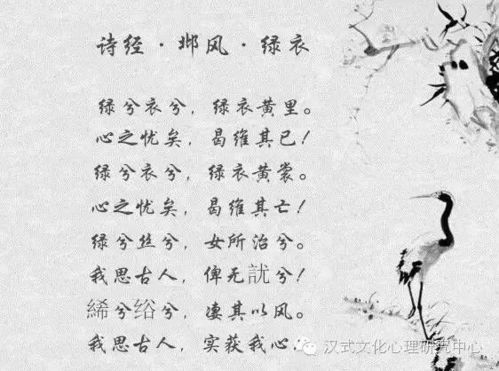 诗经·邶风·绿衣
绿兮衣兮，绿衣黄里。
心之忧矣，曷维其已！
绿兮衣兮，绿衣黄裳。
心之忧矣，曷维其亡！
绿兮丝兮，女所治兮。
我思古人，俾无訧兮！
絺兮绤兮，凄其以风。
我思古人，实获我心！
汉式文化心理研究中心